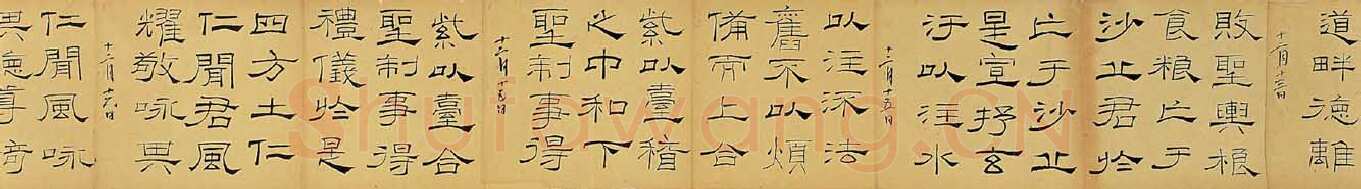 道畔德離
敗聖輿粮
食粮亡于
沙丘君於
亡于沙丘
是宣抒玄
汙以注水
十二月十五日
以注流法
舊不以煩
備而上合
紫以臺稽
之中和下
聖制事得
紫以臺合
聖制事得
禮儀於是
四方土仁
仁聞君風
耀敬咏其
十二月十六日
仁聞風咏
其德尊奇
Shufawang.CN